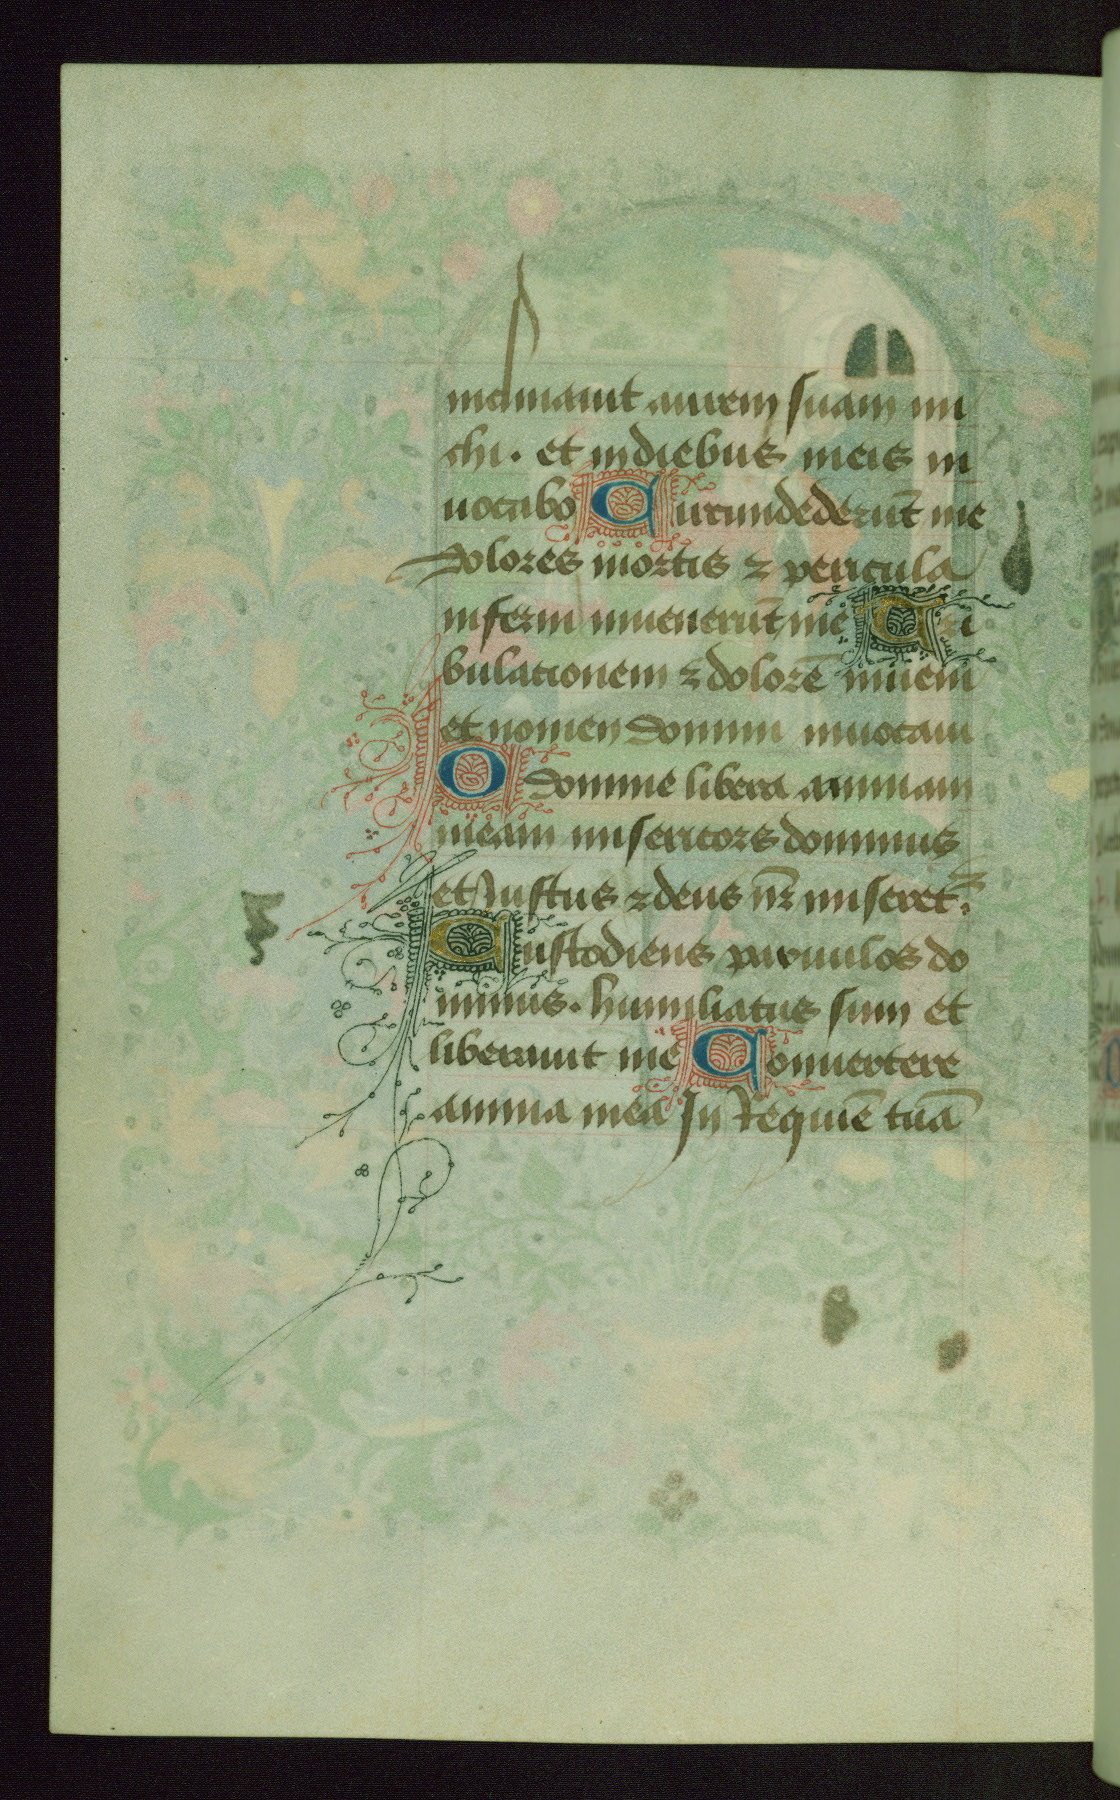 inclinauit aurem suam mi
chi. et in diebus meis in
uocabo Circundederūt me
dolores mortis ⁊ pericula
inferni inuenerūt me Tri
bulationem ⁊ dolorē inueni
et nomen domini inuocaui
O domine libera animam
meam misericors dominus
et Iustus ⁊ deus nr̄ miseret᷑.
Custodiens paruulos do
minus. humiliatus sum et
liberauit me Conuertere
anima mea In Requiē tuā